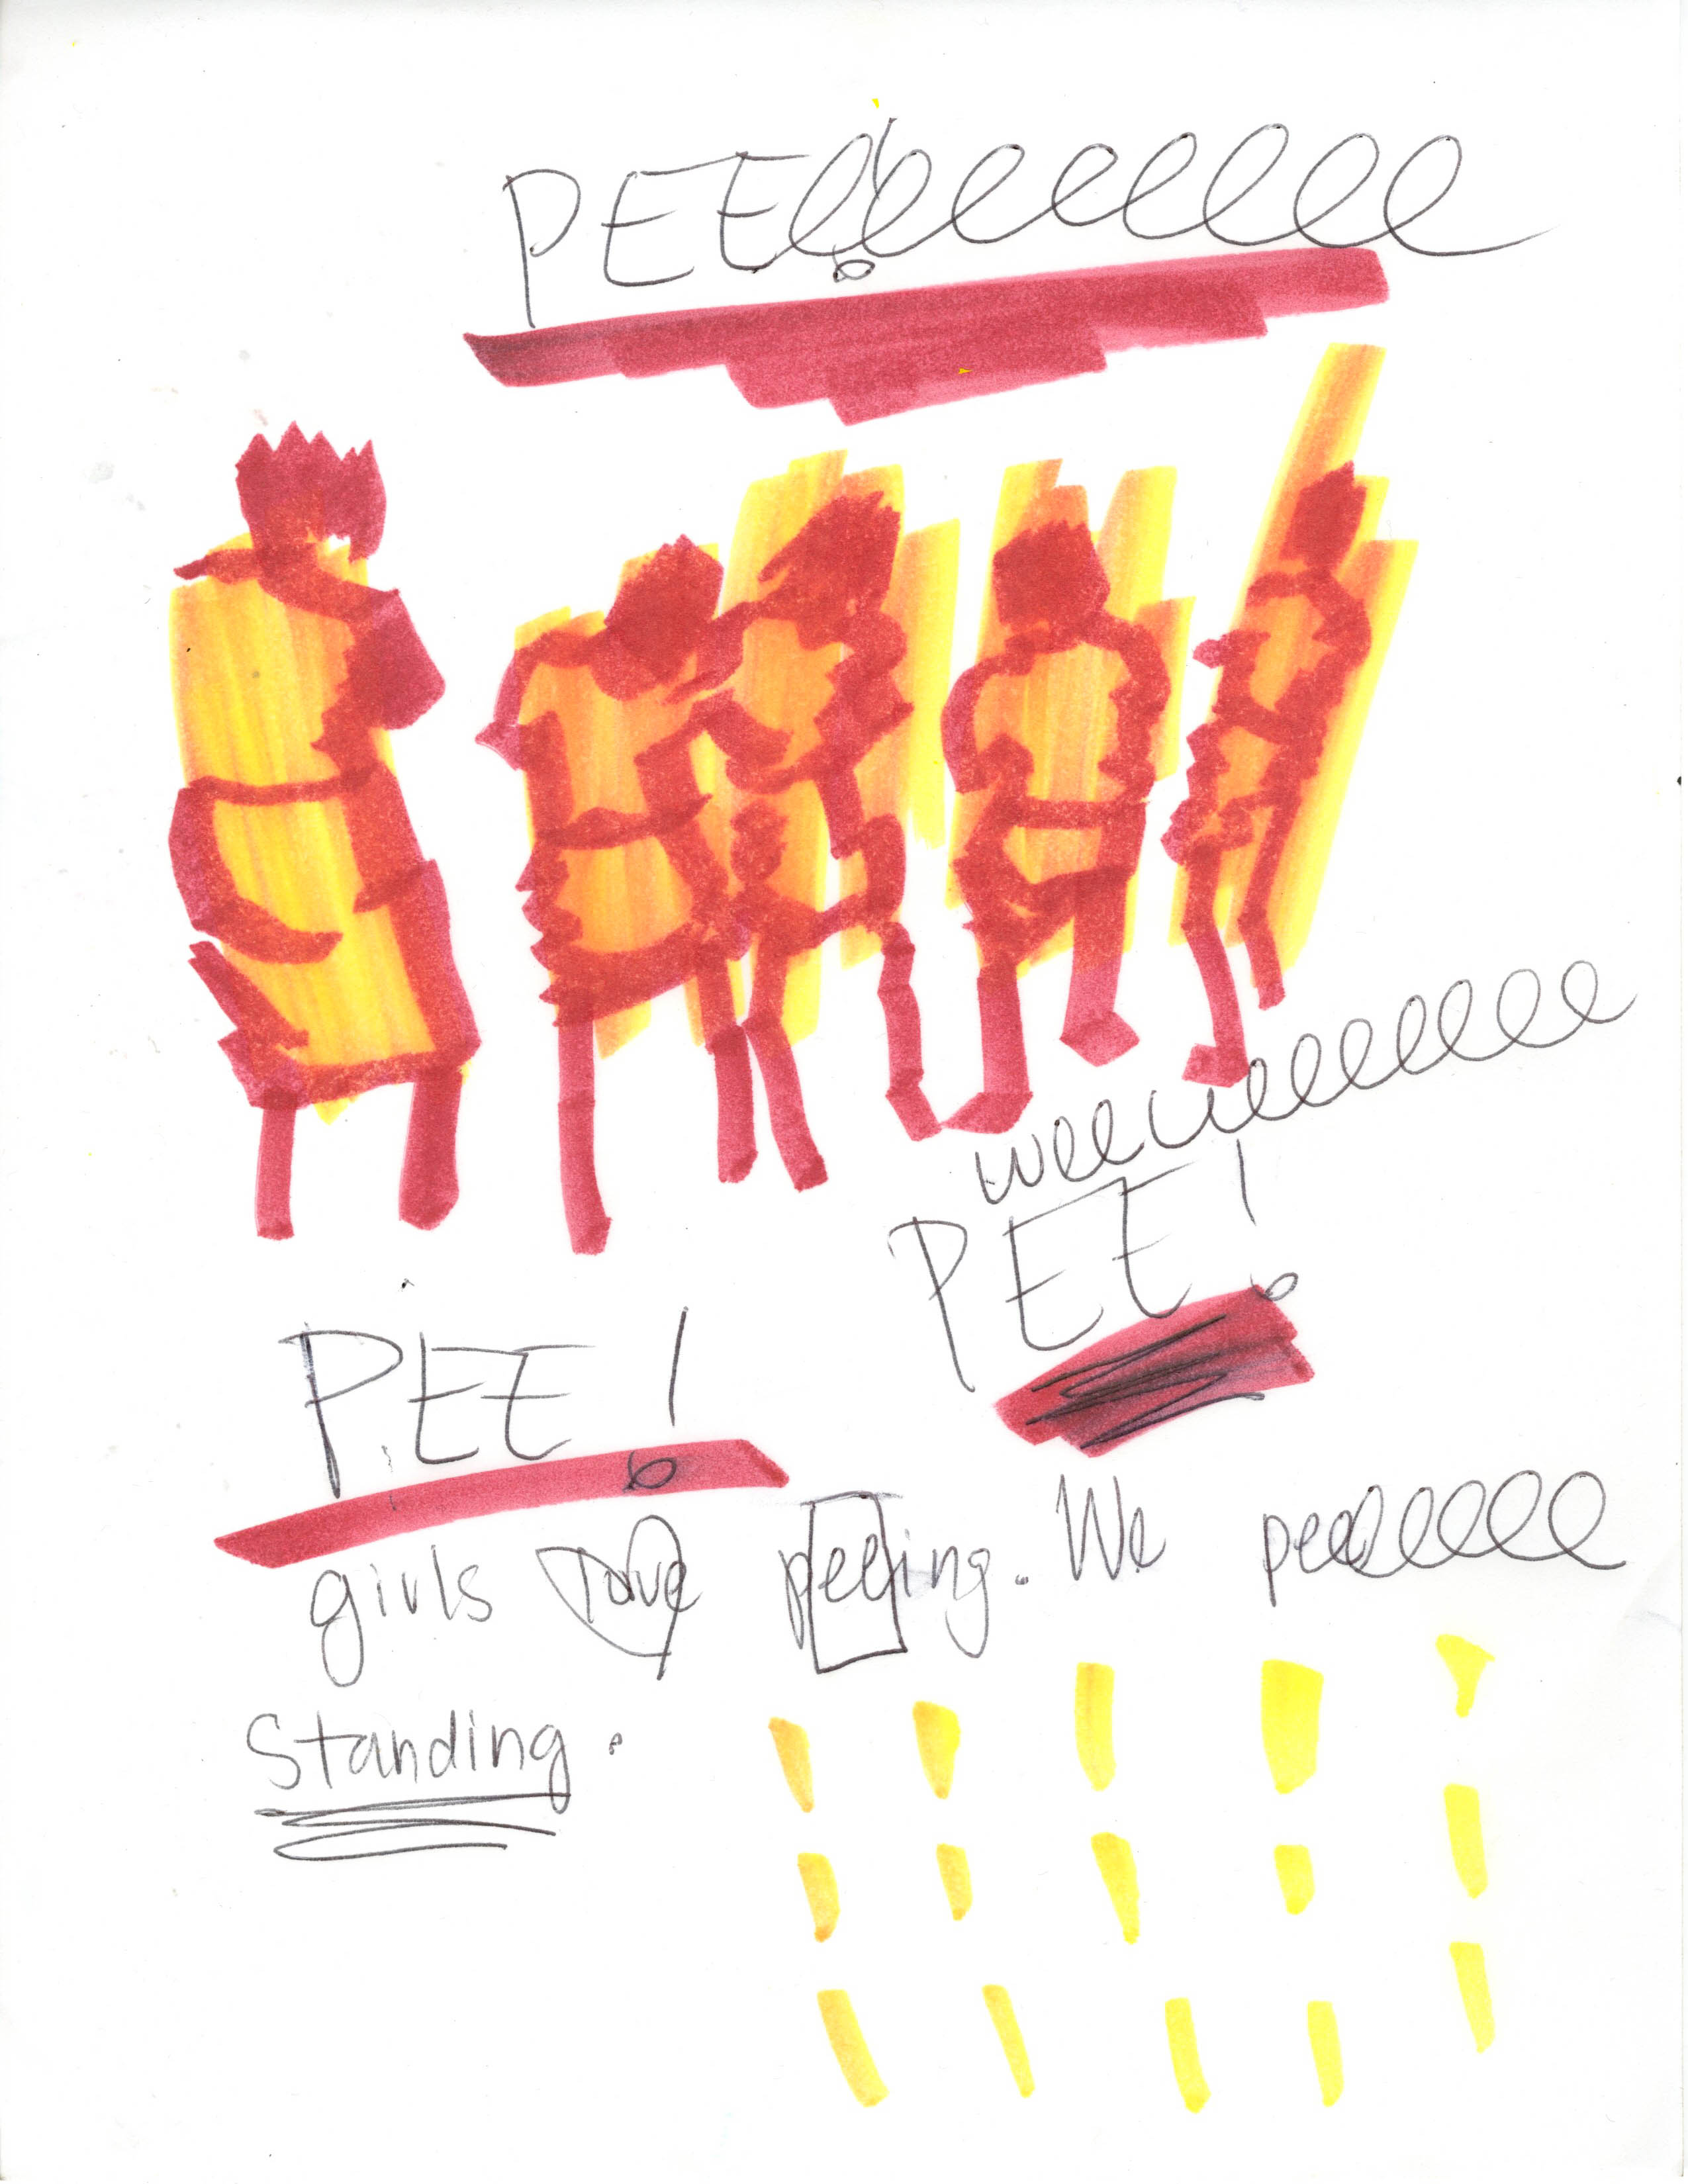 PEEeeeeeeeee!
weeweeeeeeeee
PEE!
PEE!
girls love peeing. We peeeeeeee
Standing.